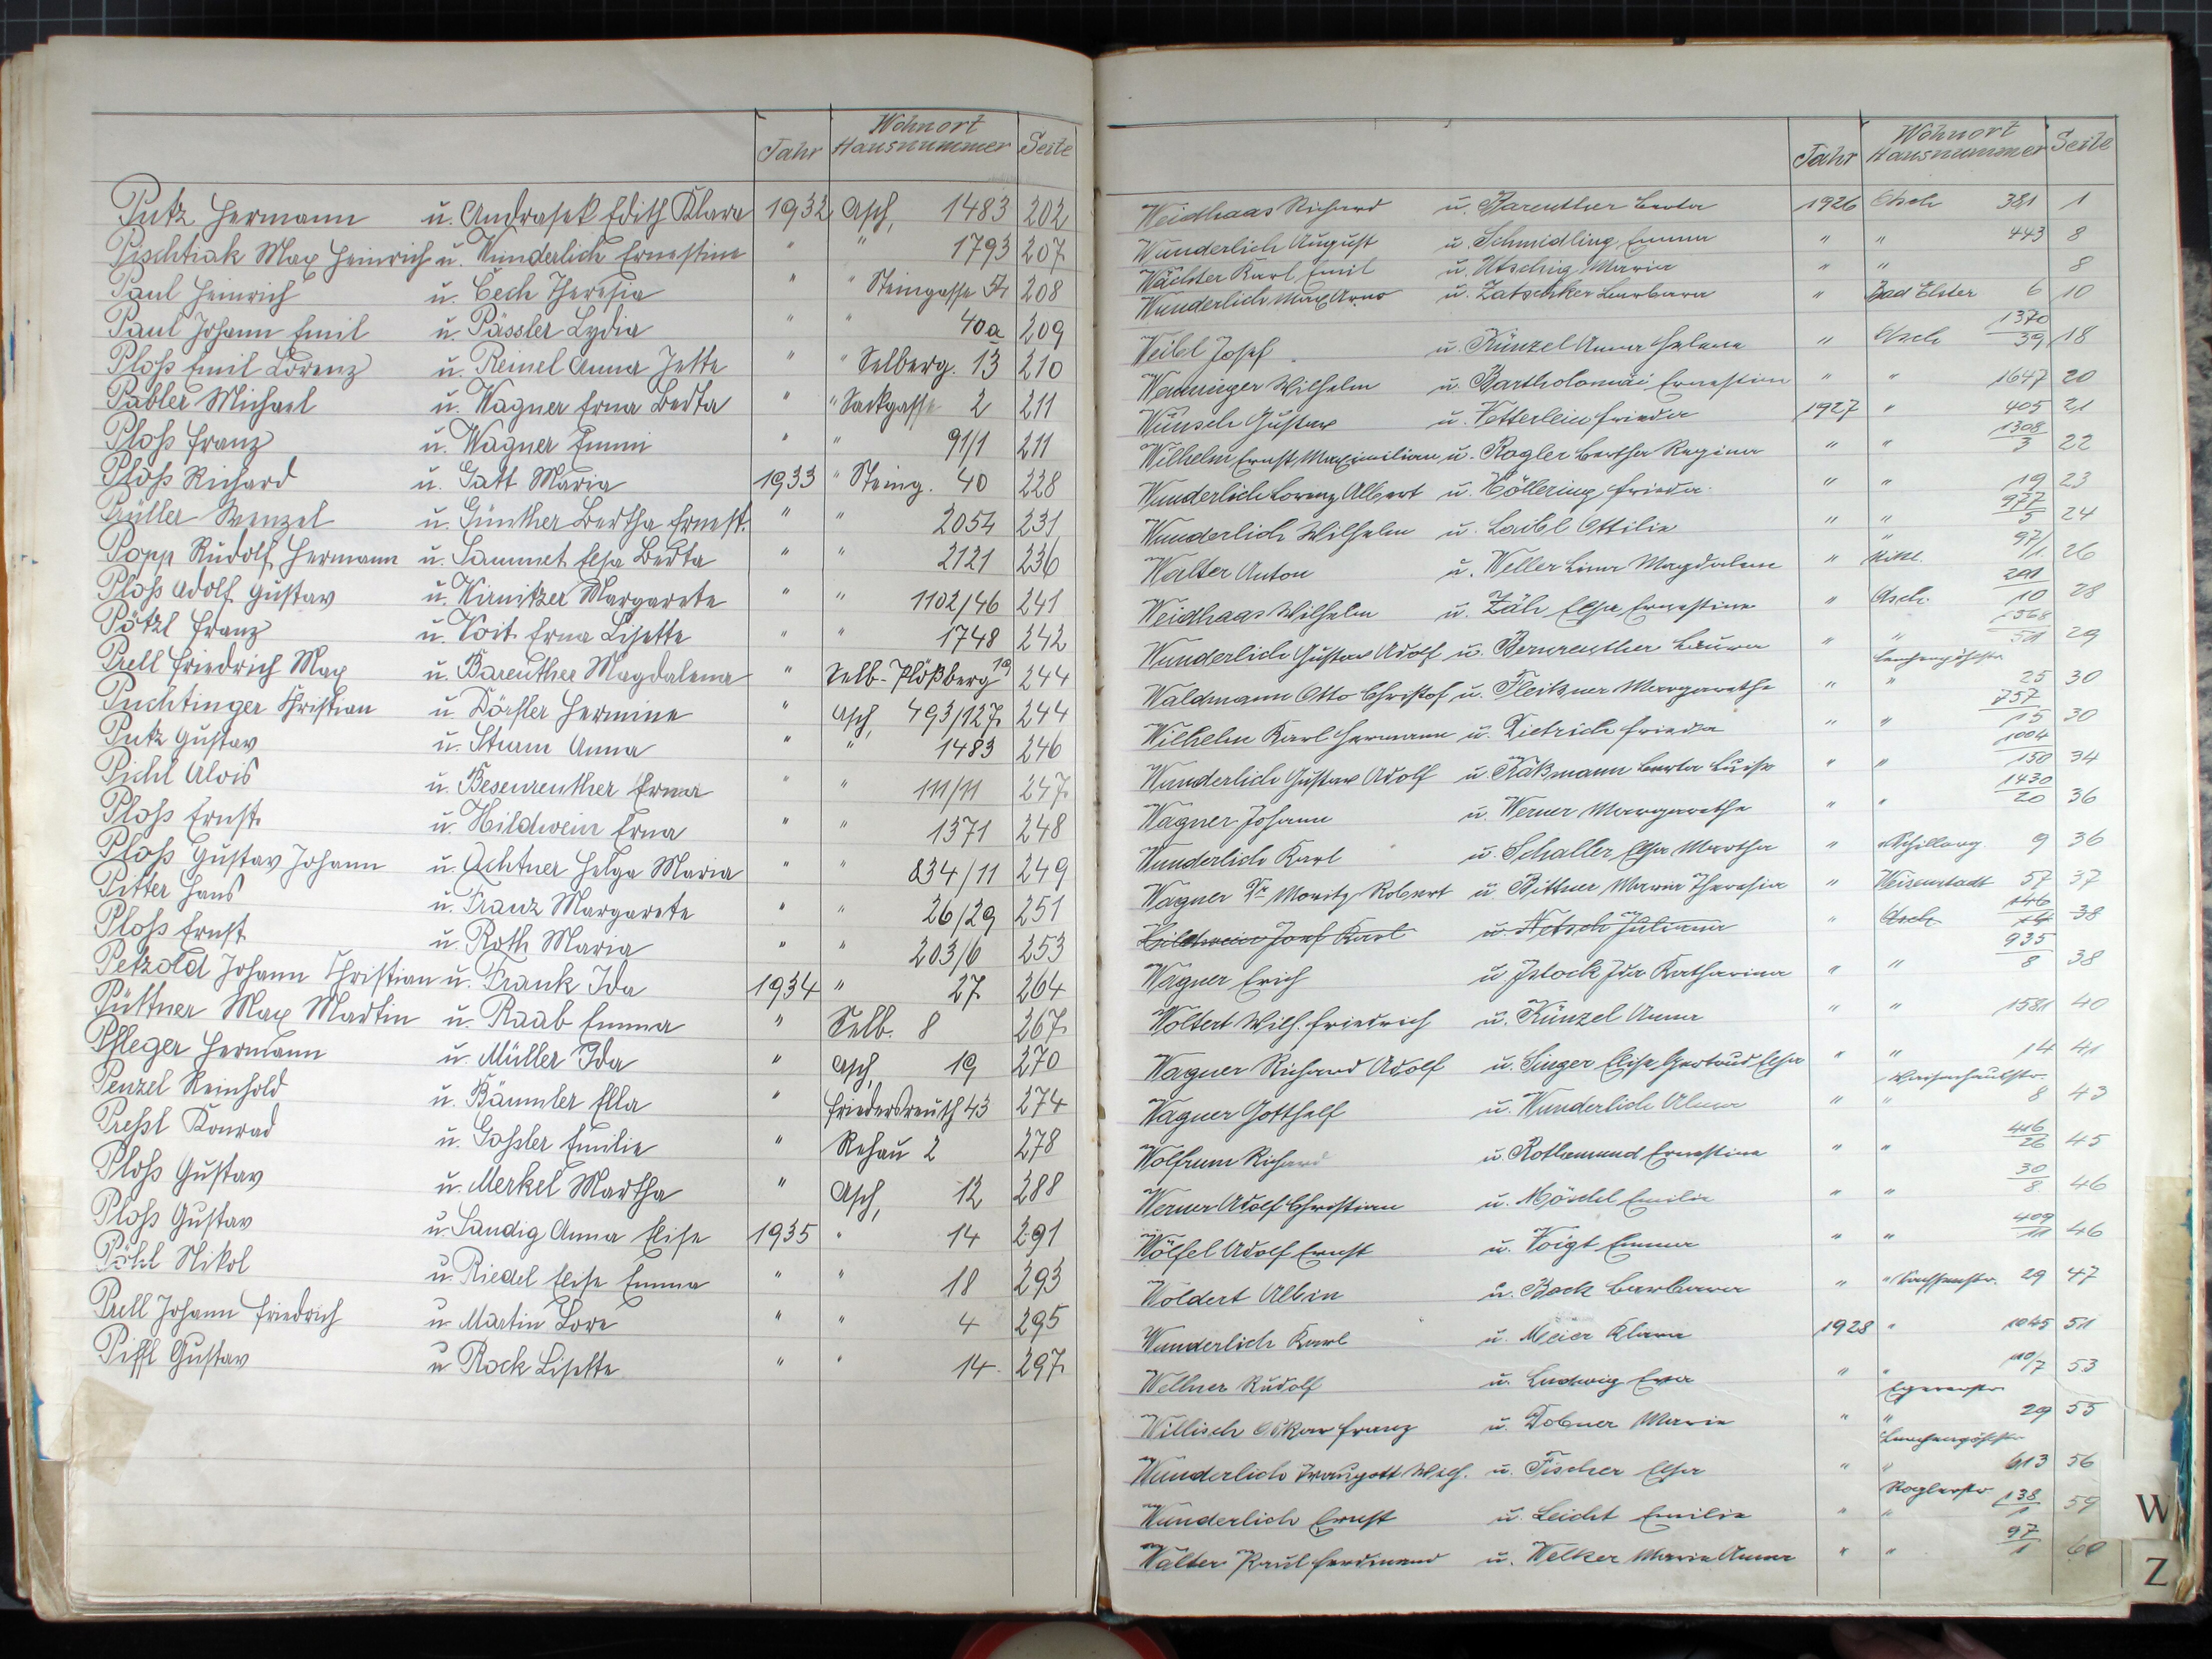 Jahr Wohnort Hausnummer Seite
Putz Hermann u. Andrasek Edith Klara 1932 Asch, 1483 202
Pischtiak Max Heinrich u. Wunderlich Ernestine " " 1793 207
Paul Heinrich u. Čech Theresia " " Steingasse 208
Paul Johann Emil u. Pässler Lydia " " 40a 209
Ploß Emil Lorenz u. Reinel Anna Jette " " Selberg. 13 210
Pabler Michael u. Wagner Erna Berta " " Sackgasse 2 211
Ploß Franz u. Wagner Emmi " " 91/1 211
Ploß Richard u. Gatt Maria 1933 " Steing. 40 228
Wenzel u. Günther Bertha Ernest. " " 2054 231
Popp Rudolf Hermann u. Sammet Elsa Berta " " 2121 236
Ploß Adolf Gustav u. Wirnitzer Margarete " " 1102/46 241
Pötzl Franz u. Voit Erna Lisette " " 1748 242
Prell Friedrich Max u. Bareuther Magdalena " Selb-Plößberg 19 244
Puchtinger Christian u. Dörfler Hermine " Asch, 493/127 244
Putz Gustav u. Sturm Anna " " 1483 246
Pichl Alois u. Beseureuther Erna " " 111/11 247
Ploß Ernst u. Hildwein Erna " " 1371 248
Ploß Gustav Johann u. Achtner Helga Maria " " 834/11 249
Pitter Hans u. Franz Margarete " " 26/29 251
Ploß Ernst u. Roth Maria " " 203/6 253
Petzold Johann Christian u. Frank Ida 1934 " 27 264
Püttner Max Martin u. Raab Emma " Selb. 8 267
Pfleger Hermann u. Müller Ida " Asch, 19 270
Penzel Reinhold u. Bäumler Ella " Friedersreuth 43 274
Preßl Konrad u. Goßler Emilie " Rehau 2 278
Ploß Gustav u. Merkel Martha " Asch, 12 288
Ploß Gustav u. Sandig Anna Elise 1935 " 14 291
Pöhl Nikol u. Riedel Elise Emma " " 18 293
Prell Johann Friedrich u. Martin Lore " " 4 295
Piffl Gustav u. Rock Lisette " " 14 297
Jahr Wohnort Hausnummer Seite
Weidhaas Richard u. Bareuther Berta 1926 Asch 381 1
Wunderlich August u. Schmidling Emma " " 443 8
Wächter Karl Emil u. Utschig Maria " " 8
Wunderlich Max Arno u. Zatschker Barbara " Bad Elster 6 10
Weibl Josef u. Künzel Anna Helene " Asch 1370/39 18
Wenninger Wilhelm u. Bartholomäi Ernestine " " 1647 20
Wunsch Gustav u. Vetterlein Frieda 1927 " 405 21
Wilhelm Ernst Maximilian u. Rogler Bertha Regina " " 1308/3 22
Wunderlich Lorenz Albert u. Höllering Frieda " " 19 23
Wunderlich Wilhelm u. Laibl Ottilie " " 977/5 24
Walter Anton u. Weller Lina Magdalena " " 97/1 26
Weidhaas Wilhelm u. Zäh Elsa Ernestine " Asch 291/10 28
Wunderlich Gustav Adolf u. Laura " " 1568/51 29
Waldmann Otto Christof u. Fleißner Margarethe " " 25 30
Wilhelm Karl Hermann u. Dietrich Frieda " " 757/15 30
Wunderlich Gustav Adolf u. Käßmann Berta Luise " " 1004/150 34
Wagner Johann u. Werner Margarethe " " 1430/20 36
Wunderlich Karl u. Schaller Elsa Martha " Schillerg. 9 36
Wagner Dr Moritz Robert u. Bittner Maria Theresia " 57 37
Hildwein Josef Karl u. Netsch Juliana " Asch 146/14 38
Wagner Erich u. Istock Ida Katharina " " 935/8 38
Woltert Wilh. Friedrich u. Künzel Anna " " 1581 40
Wagner Richard Adolf u. Singer Elise Gertrud Elsa " " 14 41
Wagner Gotthelf u. Wunderlich Alma " " Waisenhausstr. 8 43
Wolfrum Richard u. Rothemund Ernestine " " 416/26 45
Werner Adolf Christian u. Möschl Emilie " " 30/8 46
Wölfel Adolf Ernst u. Voigt Emma " " 409/11 46
Woldert Albin u. Bock Barbara " " 29 47
Wunderlich Karl u. Meier Klara 1928 " 1045 51
Wellner Rudolf u. Ludwig Eva " " 53
Willisch Oskar Franz u. Dobner Marie " " Egererstr 29 55
Wunderlich Traugott Wilh. u. Fischer Elsa " " 613 56
Wunderlich Ernst u. Leicht Emilie " " Roglerstr 138/1 59
Walter Karl Ferdinand u. Welker Maria Anna " " 97/1 60
W
Z